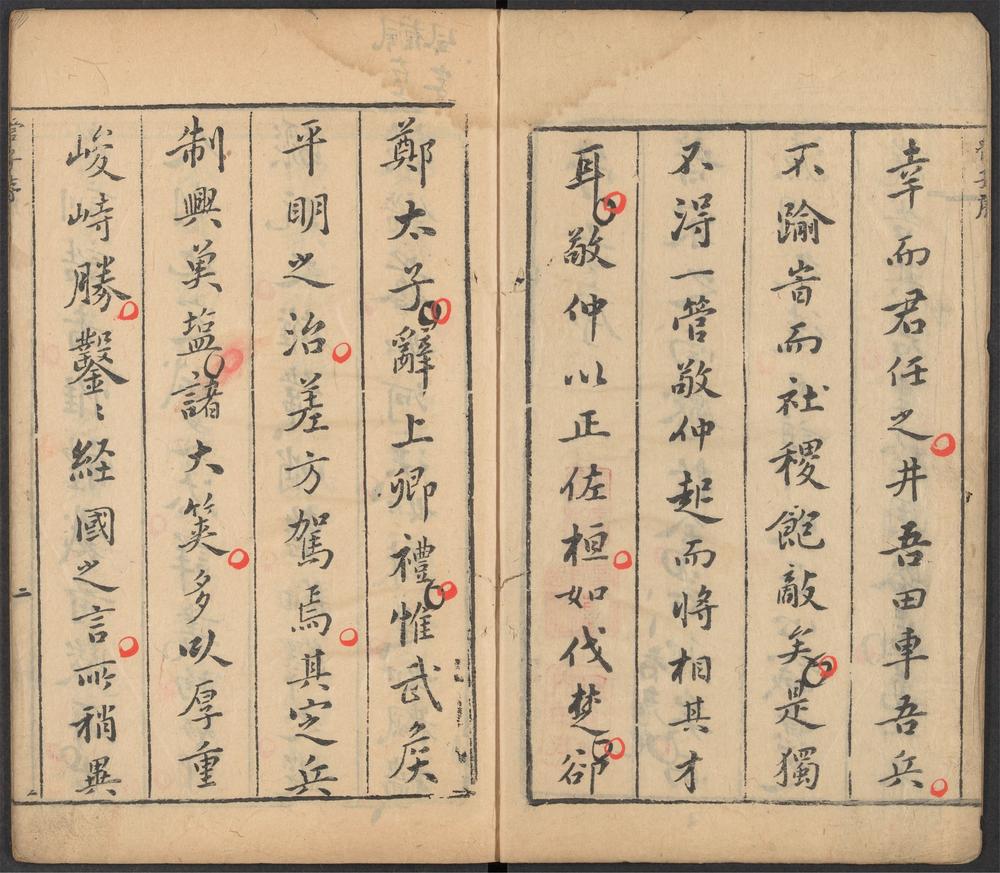 幸而君任之井吾田車吾兵
不踰峕而社稷飽敵矣是獨
不淂一管敬仲起而将相其才
耳敬仲以正佐桓如伐楚郤
鄭太子辭上卿禮惟武矦
平明之治差方駕焉其㝎兵
制興筴塩諸大筴多以厚重
峻峙勝鑿〻経國之言所稍異
二